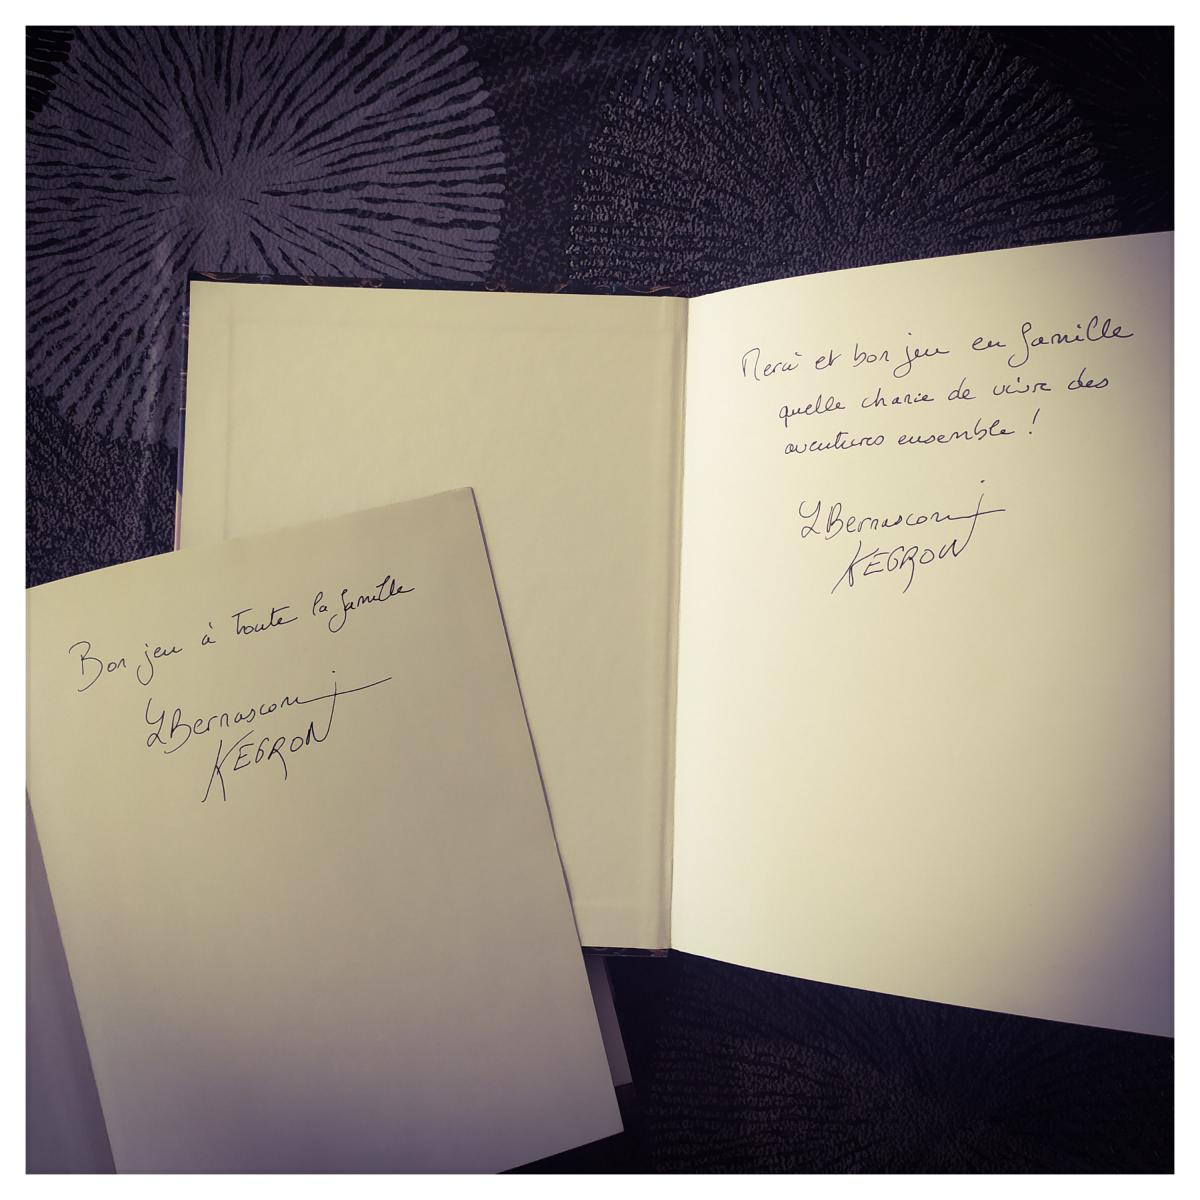 Merci et bon jeu en famille
quelle chance de vivre des
aventures ensemble !
LBernasconi
KEGRON
Bon jeu à toute la famille
LBernasconi
KEGRON